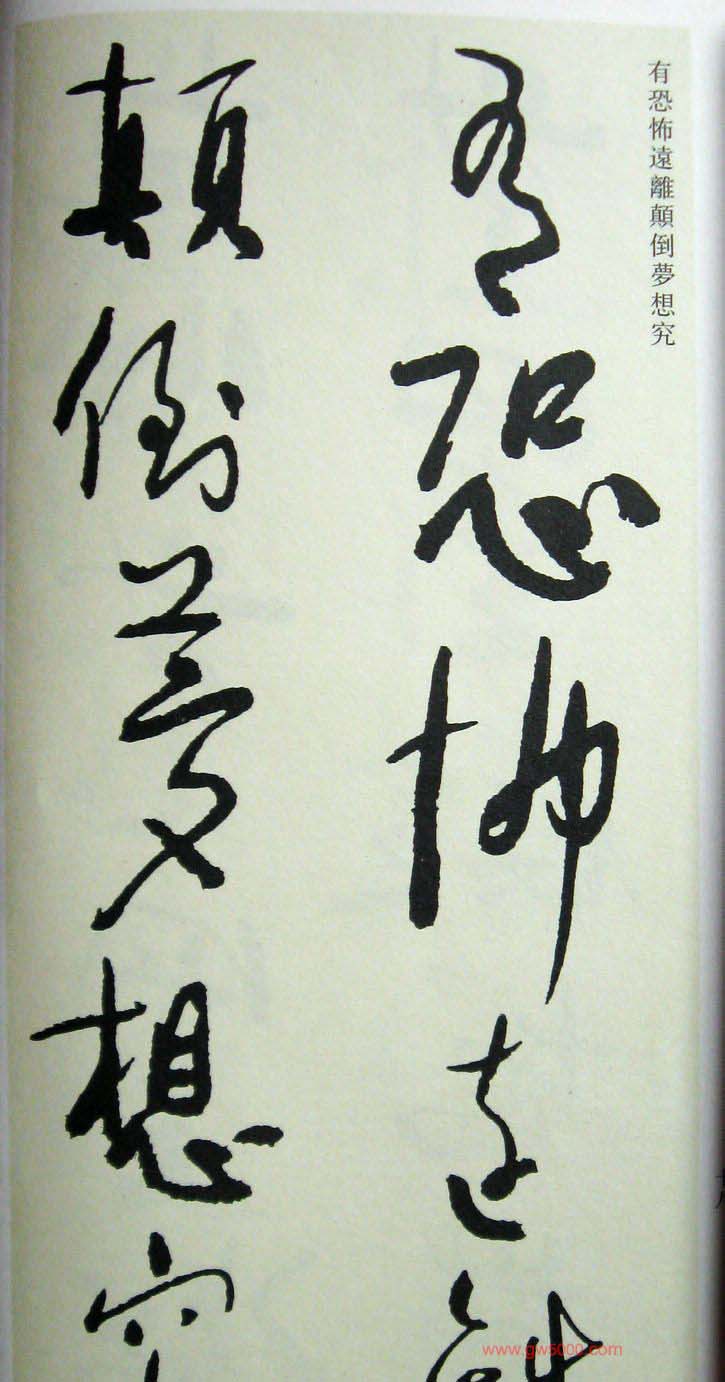 有恐怖遠離顛倒夢想究
有恐怖遠離
顛倒夢想究
www.gw5000.com